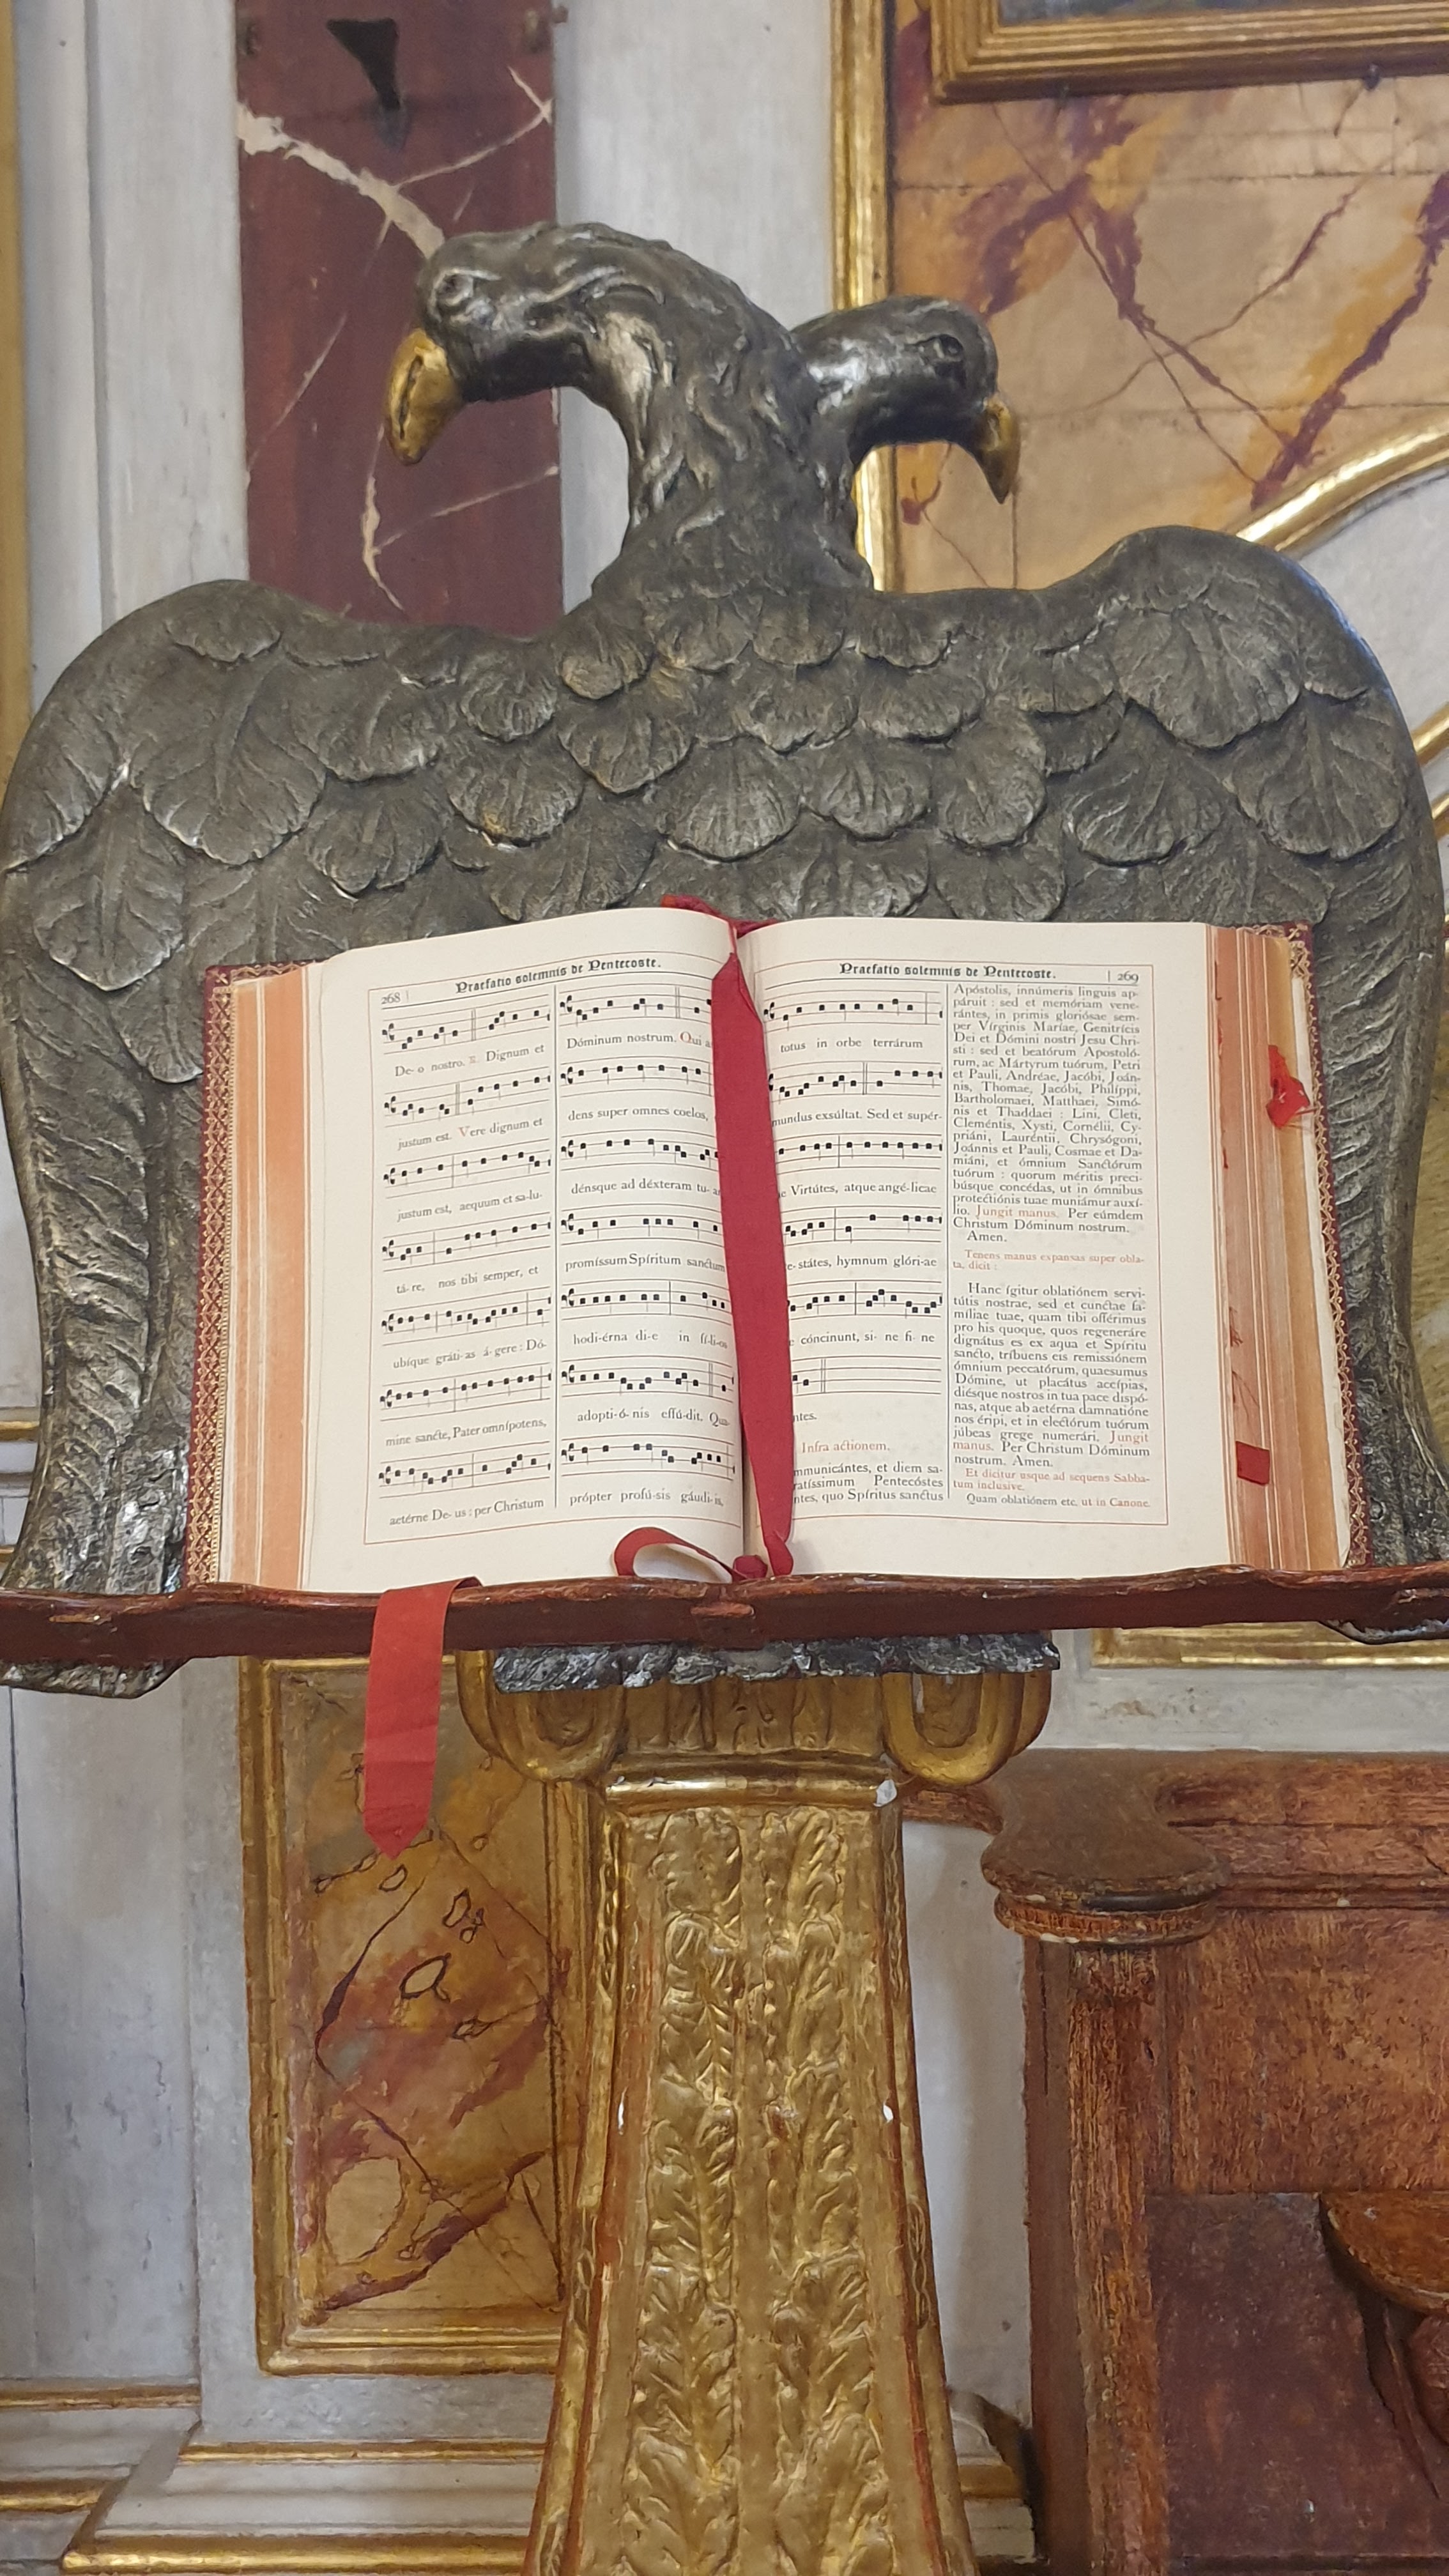 268
Praefatio solemnis de Pentecoste.
De-o nostro. ℟. Dignum et
justum est. Vere dignum et
justum est, aequum et sa-lu-
tá-re, nos tibi semper, et
ubíque gráti-as á-gere: Dó-
mine sancte, Pater omnípotens,
aetérne De-us: per Christum
Dóminum nostrum. Qui
dens super omnes coelos,
dénsque ad déxteram tu-
promíssum Spíritum sanctum
hodi-érna di-e in fí-li-os
adopti-ó-nis effú-dit. Qua-
própter profú-sis gáudi-is,
Praefatio solemnis de Pentecoste.
269
totus in orbe terrárum
mundus exsúltat. Sed et supér-
Virtútes, atque angé-licae
státes, hymnum glóri-ae
cóncinunt, si-ne fi-ne
ntes.
Infra actionem.
mmunicántes, et diem sa-
ratíssimum Pentecóstes
ntes, quo Spíritus sanctus
Apóstolis, innúmeris linguis ap-
páruit: sed et memóriam vene-
rántes, in primis gloriósae sem-
per Vírginis Maríae, Genitrícis
Dei et Dómini nostri Jesu Chri-
sti: sed et beatórum Apostoló-
rum, ac Mártyrum tuórum, Petri
et Pauli, Andréae, Jacóbi, Joán-
nis, Thomae, Jacóbi, Philíppi,
Bartholomaei, Matthaei, Simó-
nis et Thaddaei: Lini, Cleti,
Cleméntis, Xysti, Cornélii, Cy-
priáni, Lauréntii, Chrysógoni,
Joánnis et Pauli, Cosmae et Da-
miáni, et ómnium Sanctórum
tuórum: quorum méritis preci-
búsque concédas, ut in ómnibus
protectiónis tuae muniámur auxí-
lio. Jungit manus. Per eúmdem
Christum Dóminum nostrum.
Amen.
Tenens manus expansas super obla-
ta, dicit:
Hanc ígitur oblatiónem servi-
tútis nostrae, sed et cunctae fa-
míliae tuae, quam tibi offérimus
pro his quoque, quos regeneráre
dignátus es ex aqua et Spíritu
sancto, tríbuens eis remissiónem
ómnium peccatórum, quaesumus
Dómine, ut placátus accípias,
diésque nostros in tua pace dispó-
nas, atque ab aetérna damnatióne
nos éripi, et in electórum tuórum
júbeas grege numerári. Jungit
manus. Per Christum Dóminum
nostrum. Amen.
Et dicitur usque ad sequens Sabba-
tum inclusive.
Quam oblatiónem etc. ut in Canone.